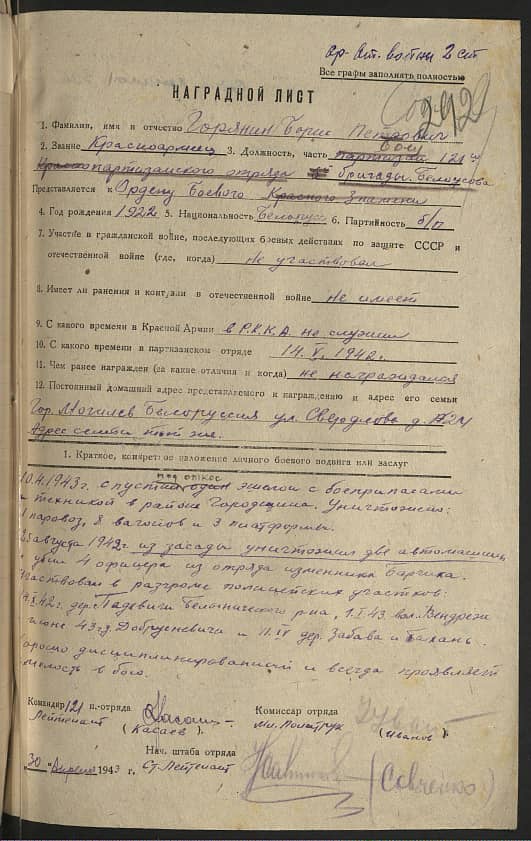 ор. От. войны 2 ст
Все графы заполнять полностью
НАГРАДНОЙ ЛИСТ
292
1. Фамилия, имя и отчество Горянин Борис Петрович
2. Звание Красноармеец 3. Должность, часть партизан 121
партизанского отряда бригады. Белоусова
Представляется к Ордену Боевого Красного Знамени
4. Год рождения 1922 5. Национальность Белорус 6. Партийность б/п
7. Участие в гражданской войне, последующих боевых действиях по защите СССР и
отечественной войне (где, когда) не участвовал
8. Имеет ли ранения и контузии в отечественной войне не имеет
9. С какого времени в Красной Армии в Р.К.К.А. не служил
10. С какого времени в партизанском отряде 14.V.1942г.
11. Чем ранее награжден (за какие отличия и когда) не награждался
12. Постоянный домашний адрес представляемого к награждению и адрес его семьи
Гор. Могилев Белоруссия ул. Свердлова д. №24
Адрес семьи тот же.
1. Краткое, конкретное изложение личного боевого подвига или заслуг
под откос
4.1943г. спустил один эшелон с боеприпасами
и техникой в районе Городщина. Уничтожено:
паровоз, 8 вагонов и 3 платформы.
августа 1942г. из засады уничтожил две автомашины
убил 4 офицера из отряда изменника
участвовал в разгроме полицейских участков:
42г. дер. Белынического р-на, 1.I.43. вол. Вендрож
июне 43г. и 11.IV дер. Забава и
Хорошо дисциплинированный и всегда проявляет
смелость в бою.
Командир 121 п.-отряда Комиссар отряда
Лейтенант (Касаев) Мл. Политрук (Иванов)
Нач. штаба отряда
30 "Апреля 1943 г. Ст. Лейтенант (Савченко)